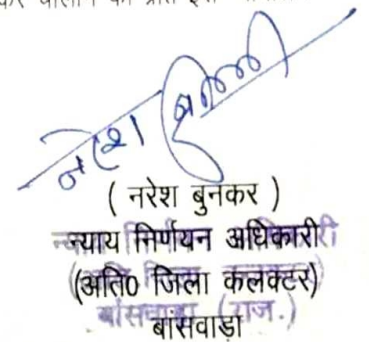 नरेश
( नरेश बुनकर )
न्याय निर्णयन अधिकारी
(अति0 जिला कलक्टर)
बांसवाड़ा (राज.)
बांसवाडा